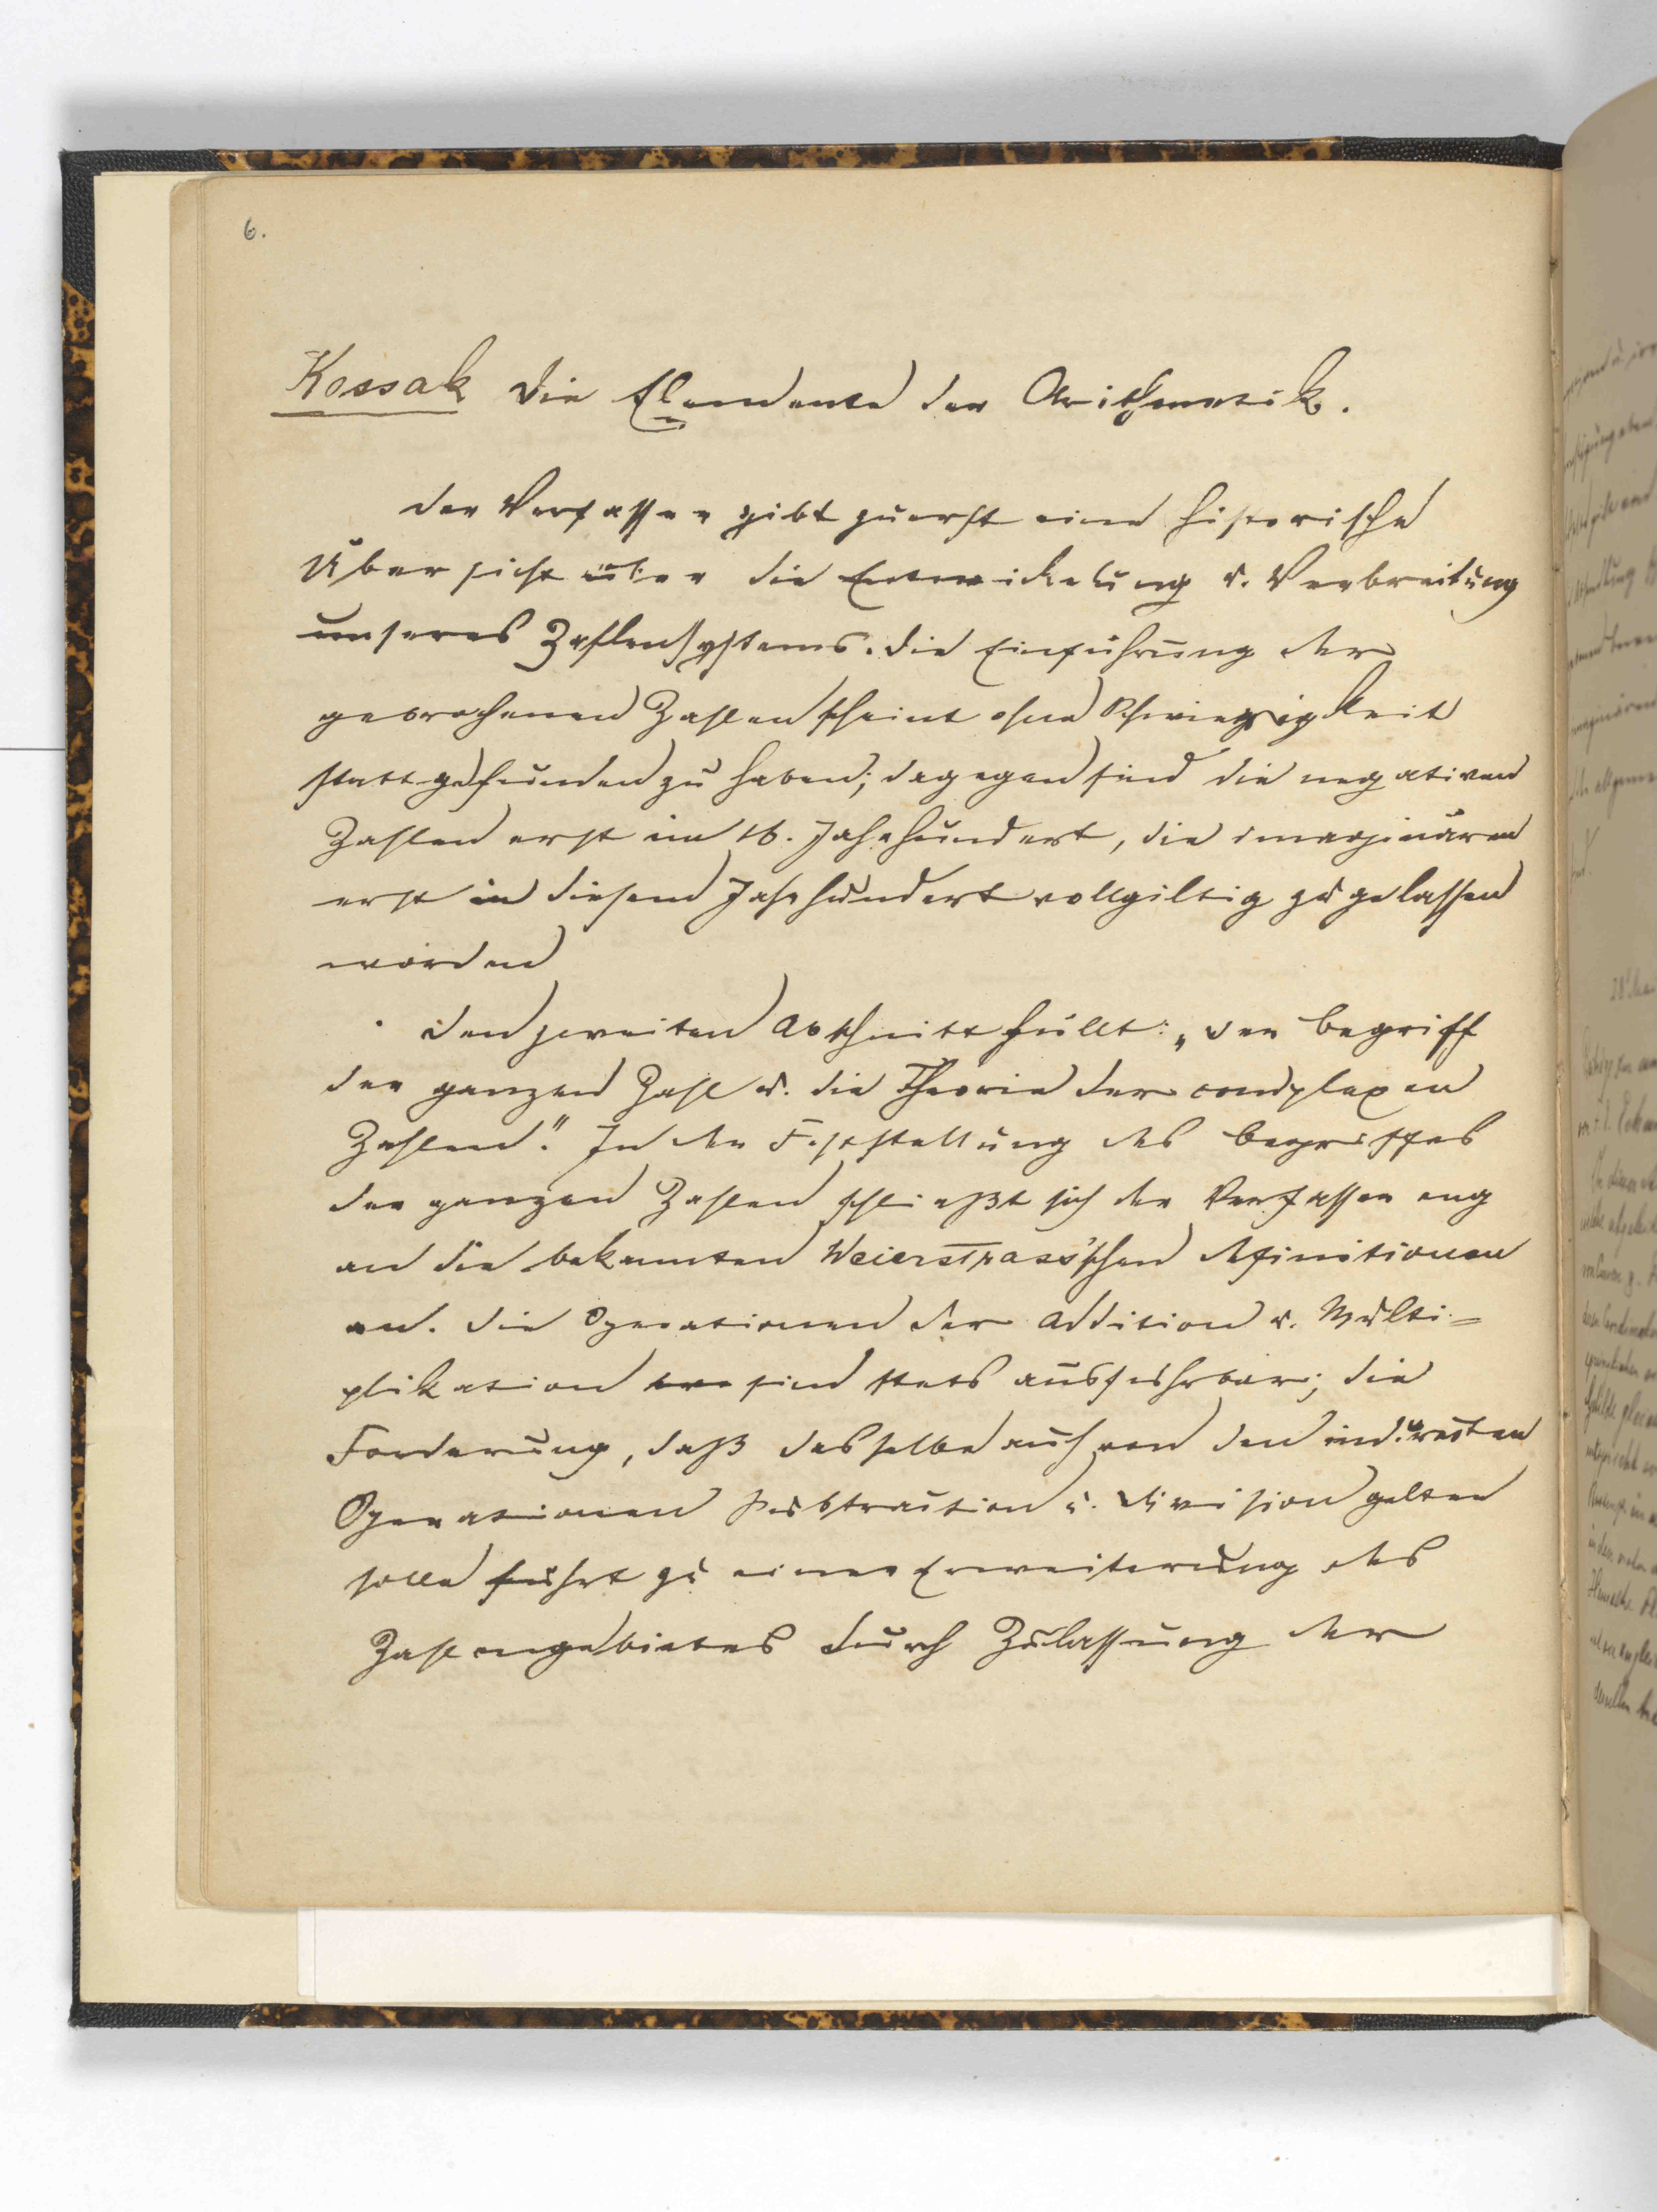 6.
Kossak die Elemente der Arithmetik.
Der Verfasser gibt zuerst eine historische
Übersicht über die Entwickelung u. Verbreitung
unseres Zahlensystems. Die Einführung der
gebrochenen Zahlen scheint ohne Schwierigkeit
stattgefunden zu haben; dagegen sind die negativen
Zahlen erst im 16. Jahrhundert, die imaginären
erst in diesem Jahrhundert vollgiltig zugelassen
worden
Den zweiten Abschnitt füllt: „Der Begriff
der ganzen Zahl u. die Theorie der complexen
Zahlen." In der Feststellung des Begriffes
der ganzen Zahlen schließt sich der Verfasser eng
an die bekannten Weierstrass'schen Definitionen
an. Die Operationen der Addition u. Multi=
plikation sind stets ausführbar; die
Forderung, daß dasselbe auch von den indirecten
Operationen Subtraction u. Division gelten
solle führt zu einer Erweiterung des
Zahlengebietes durch Zulassung der